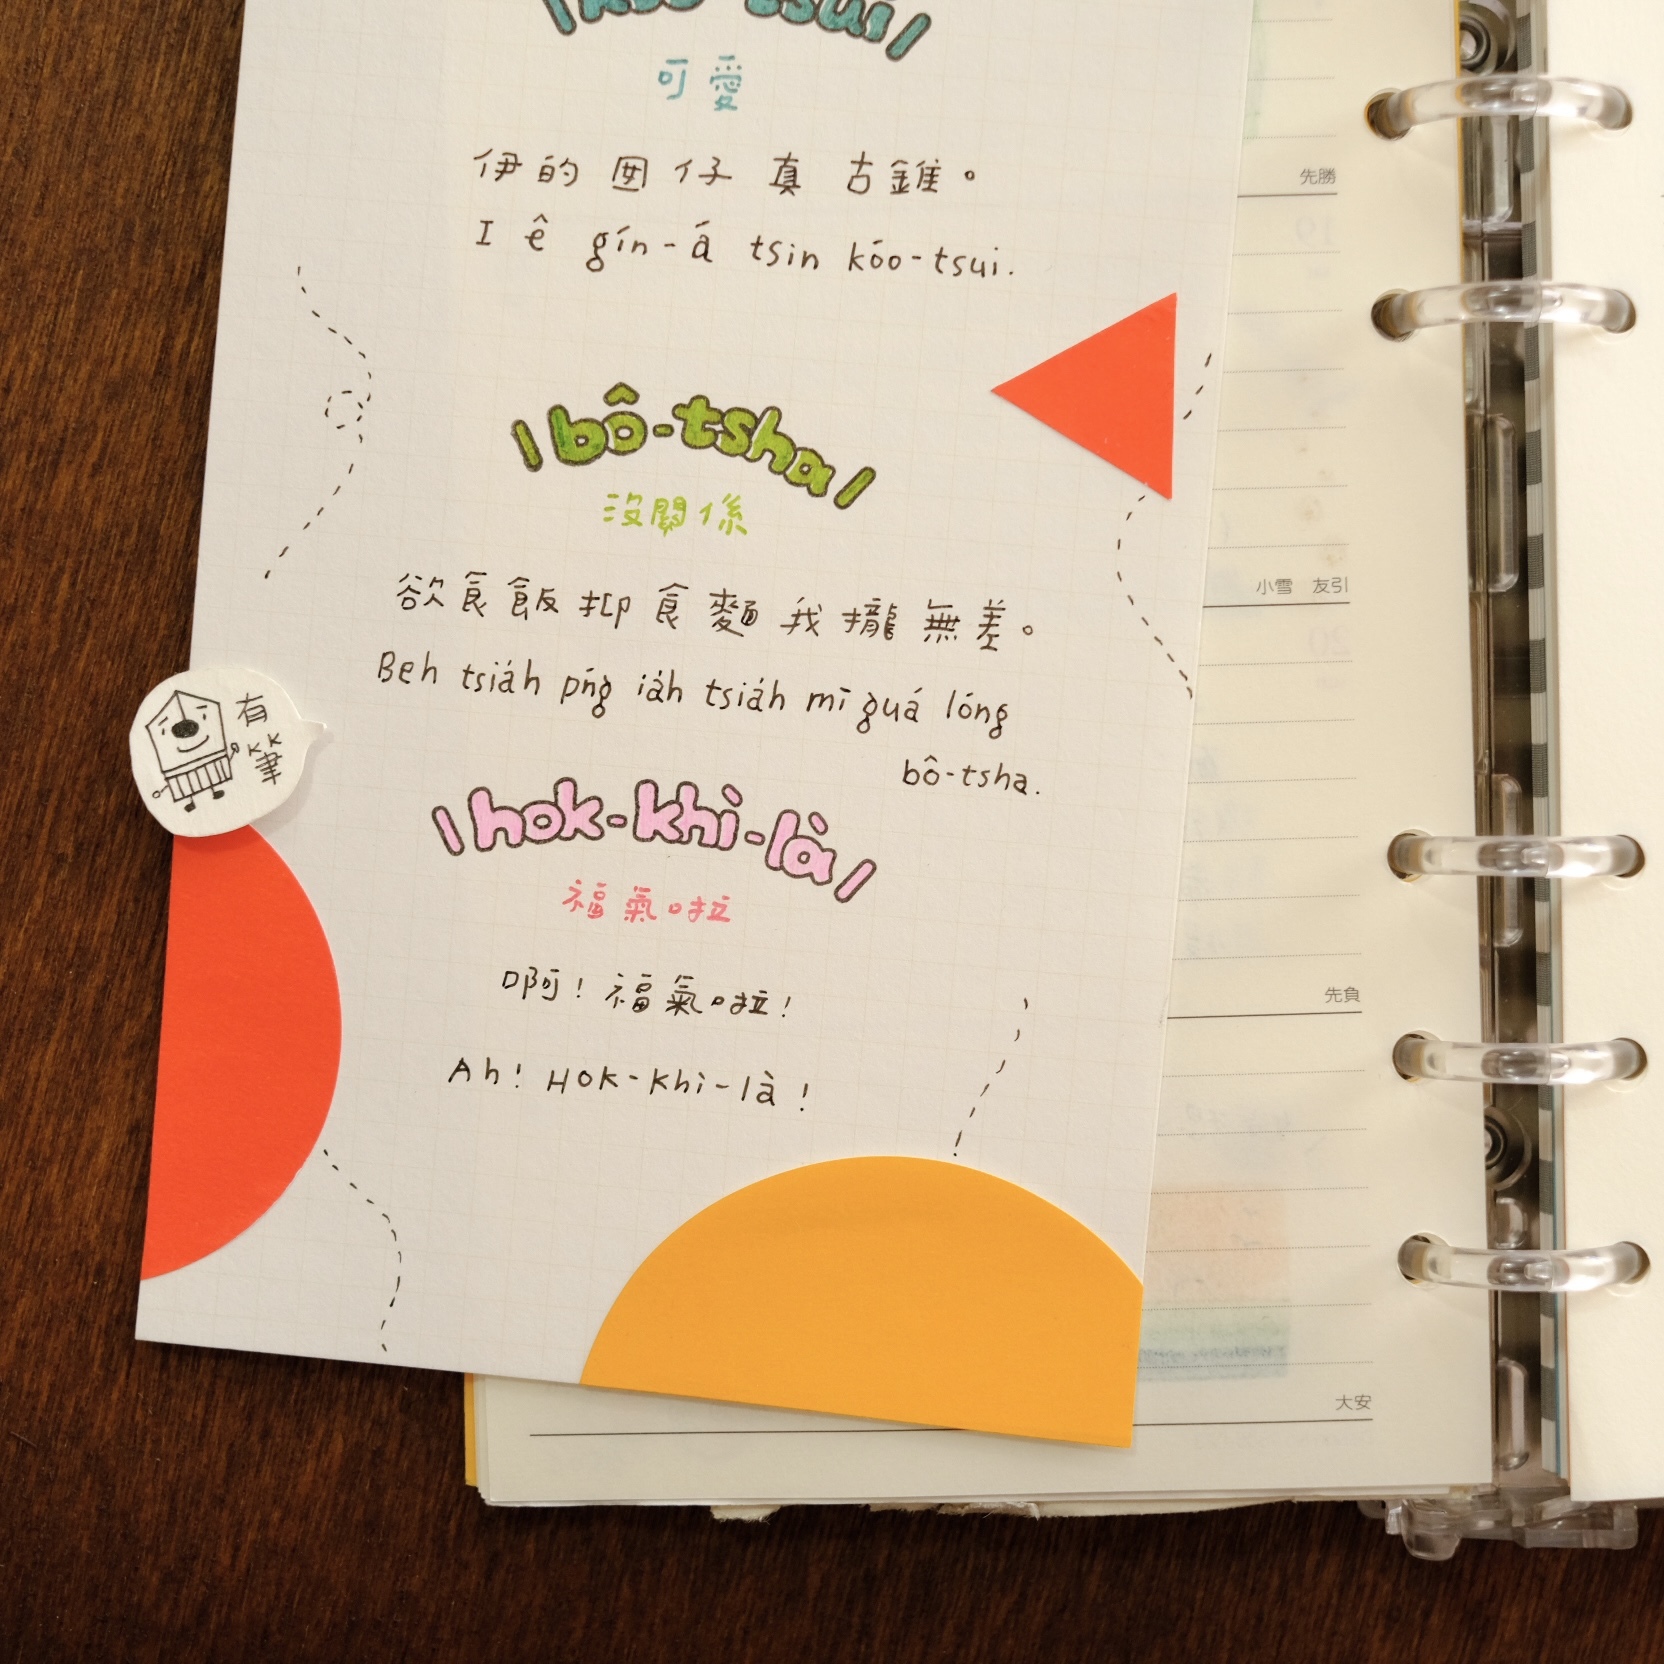 kóo-tsui
可愛
伊的囡仔真古錐。
I ê gín-á tsin kóo-tsui.
bô-tsha
沒關係
欲食飯抑食麵我攏無差。
Beh tsia̍h pn̄g ia̍h tsia̍h mī guá lóng
bô-tsha.
有筆
hok-khì-là
福氣啦
啊!福氣啦!
Ah! Hok-khì-là!
先勝
19
小雪 友引
20
先負
大安